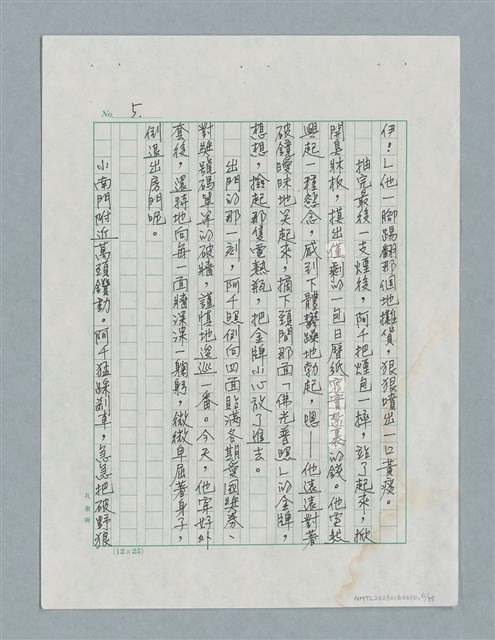 No. 5.
伊!」他一腳踢翻那個地攤貨,狠狠噴出一口黃痰。
抽完最後一支煙後,阿千把煙包一摔,站了起來,掀
開臭牀板,摸出僅剩的一包日曆紙密實緊裹的錢。他突然
興起一種慾念,感到下體鬱躁地勃起,嗯——他遠遠對著
破鏡曖昧地笑起來,摘下頸間那面「佛光普照」的金牌,
想想,撥起那隻電熱瓶,把金牌小心放了進去。
出門的那一刻,阿千照例向四面貼滿各期愛國獎券、
對獎號碼單的破牆,謹慎地巡巡一番。今天,他穿好外
套後,還特地向每一面牆深深一鞠躬,微微卑屈著身子,
倒退出房門呢。
小南門附近萬頭鑽動。阿千猛踩剎車,急急把破野狼
孔雀牌
(12×25)